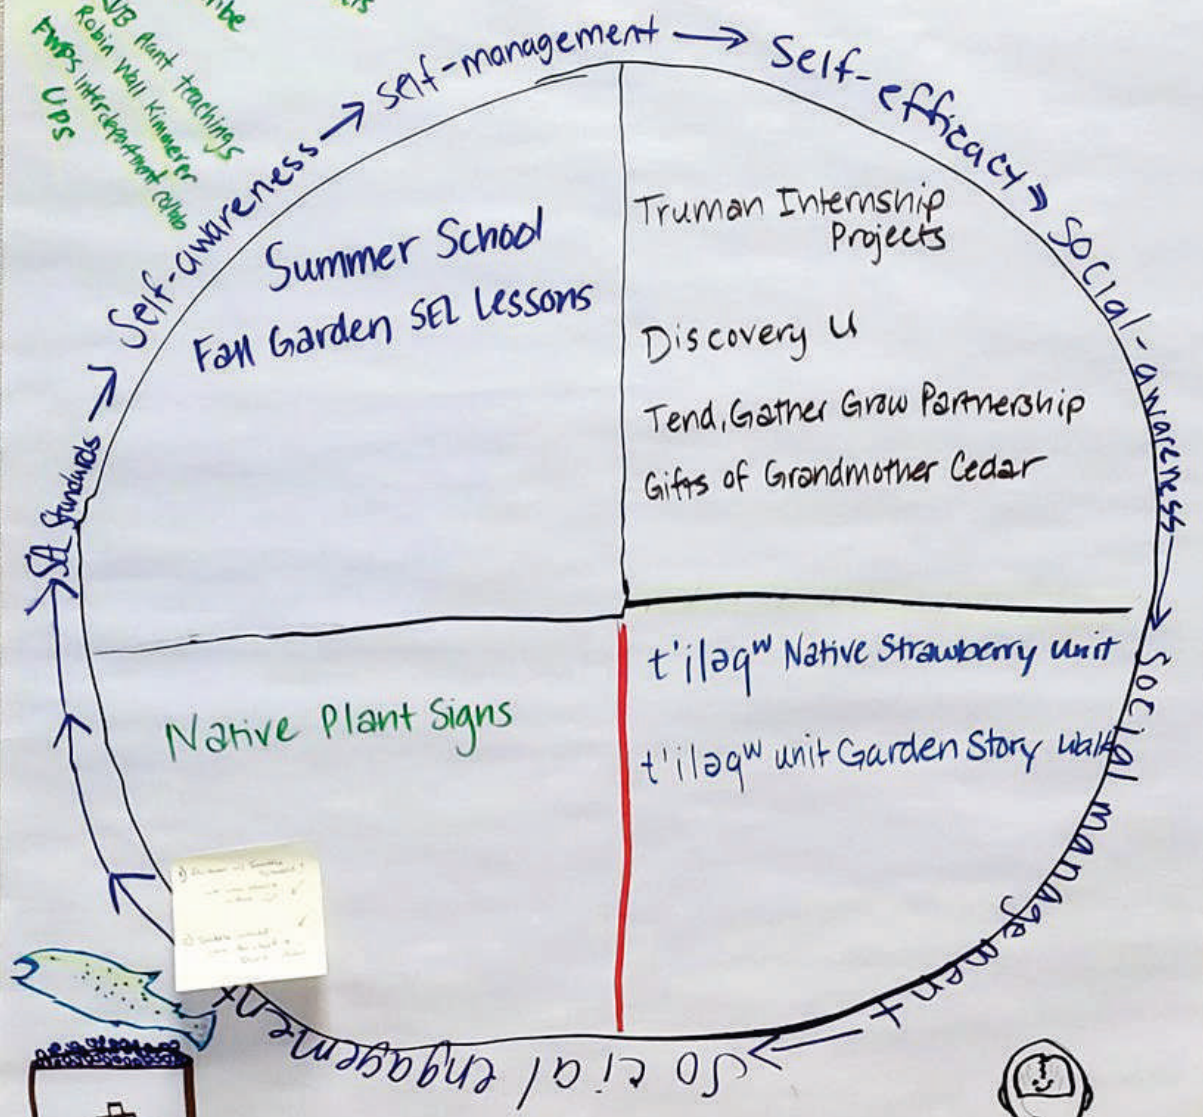 WB Plant teachings
Robin Wall Kimmerer
FWPS Interdepartment collab
UPS
SEL Standards → Self-awareness → self-management → Self-efficacy → Social-awareness → Social management → Social engagement
Summer School
Fall Garden SEL Lessons
Truman Internship
Projects
Discovery U
Tend, Gather Grow Partnership
Gifts of Grandmother Cedar
Native Plant Signs
t'iləqʷ Native Strawberry unit
t'iləqʷ unit Garden Story Walk